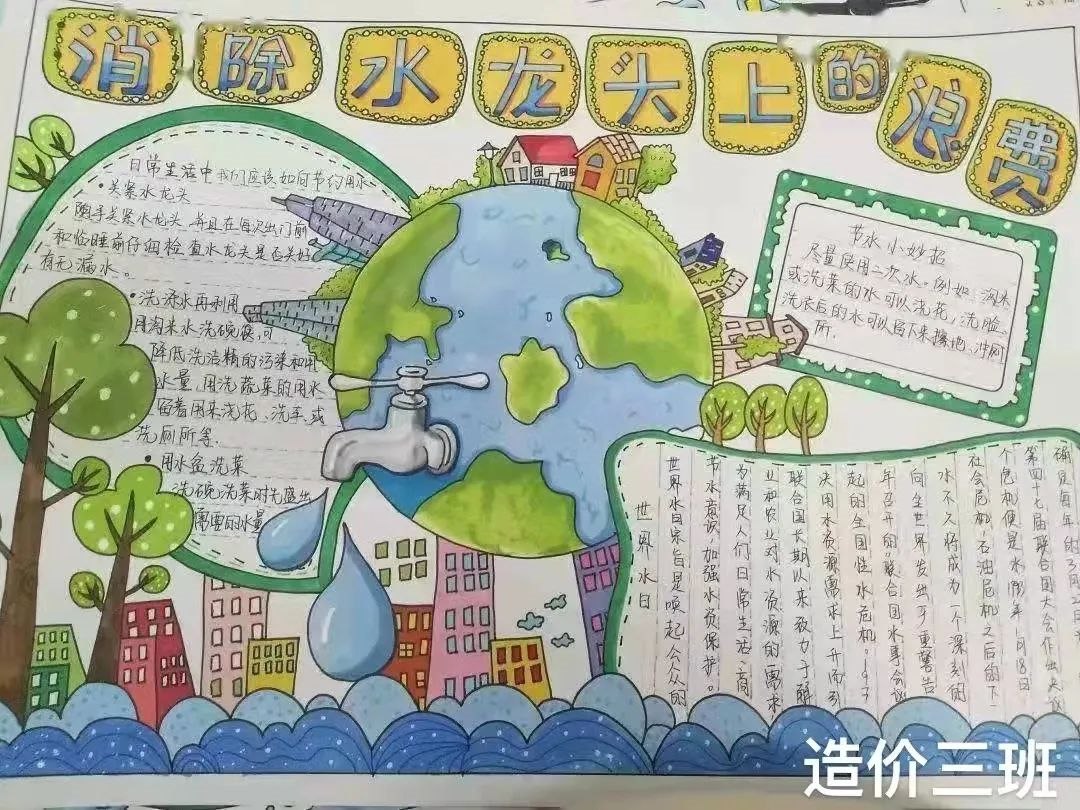 消除水龙头上的浪费
日常生活中我们应该如何节约用水
•关紧水龙头
随手关紧水龙头,并且在每次出门前
和临睡前仔细检查水龙头是否关好
有无漏水。
•洗涤水再利用
用淘米水洗碗筷,可
降低洗洁精的污染和用
水量,用洗蔬菜的用水
留着用来浇花、洗手或
洗厕所等.
•用水盆洗菜
洗碗洗菜时先盛出
需要的水量
节水小妙招
尽量使用二次水,例如、淘米
或洗菜的水可以浇花,洗脸、
洗衣后的水可以留下来擦地、冲厕
所.
世界水日
世界水日宗旨是唤起公众的
节水意识,加强水资源保护。
为满足人们日常生活、商
业和农业对水资源的需求
联合国长期以来致力于解
决用水资源需求上升而引
起的全国性水危机。1977
年召开的联合国水事会议
向全世界发出了重警告
水不久将成为一个深刻的
社会危机,石油危机之后的下
个危机便是水 年1月18日
第四十七届联合国大会作出决议
确定每年的3月
造价三班